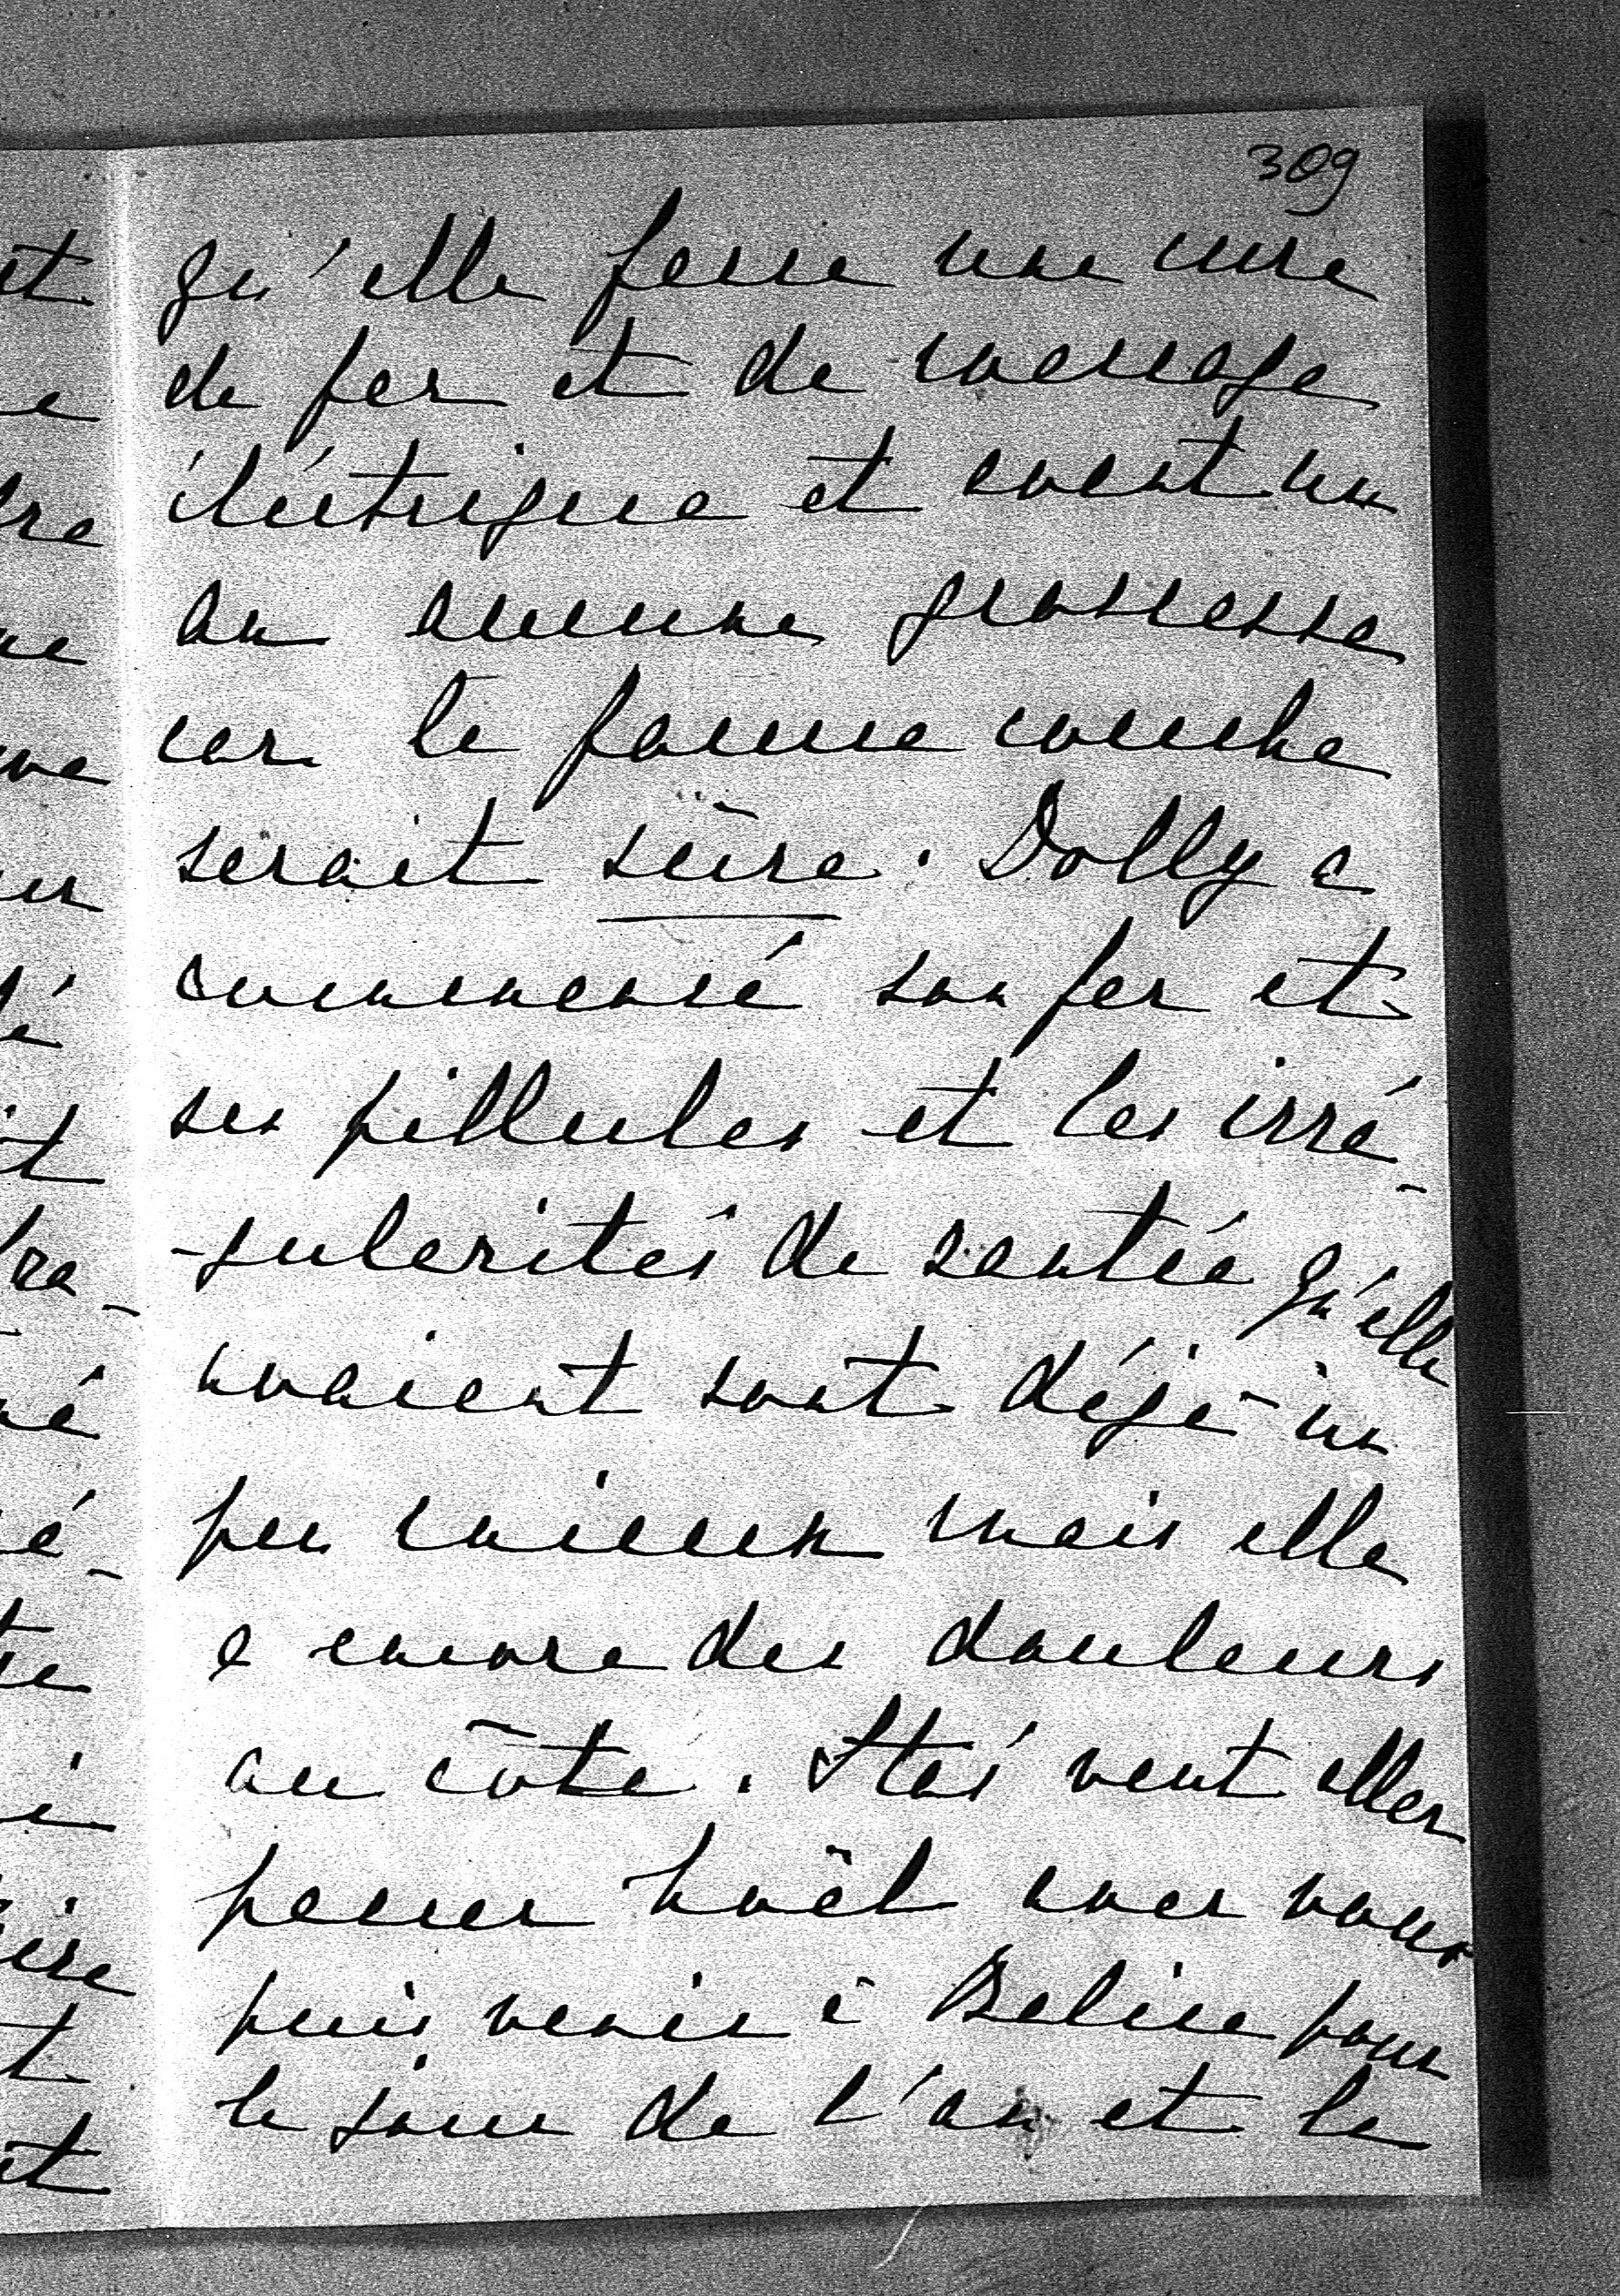 309
qu'elle fasse une cure
de fer et de massage
éléctrique et avant un
an aucune grossesse
car la fausse couche
serait sûre. Dolly a
commencé son fer et
ses pillules et les irré-
-gularités de santée qu'elle
avaient sont déjà un
peu mieux mais elle
a encore des douleurs
au côté. Stas' veut aller
passer Noël avec vous
puis venir à Balice pour
le jour de l'an et le